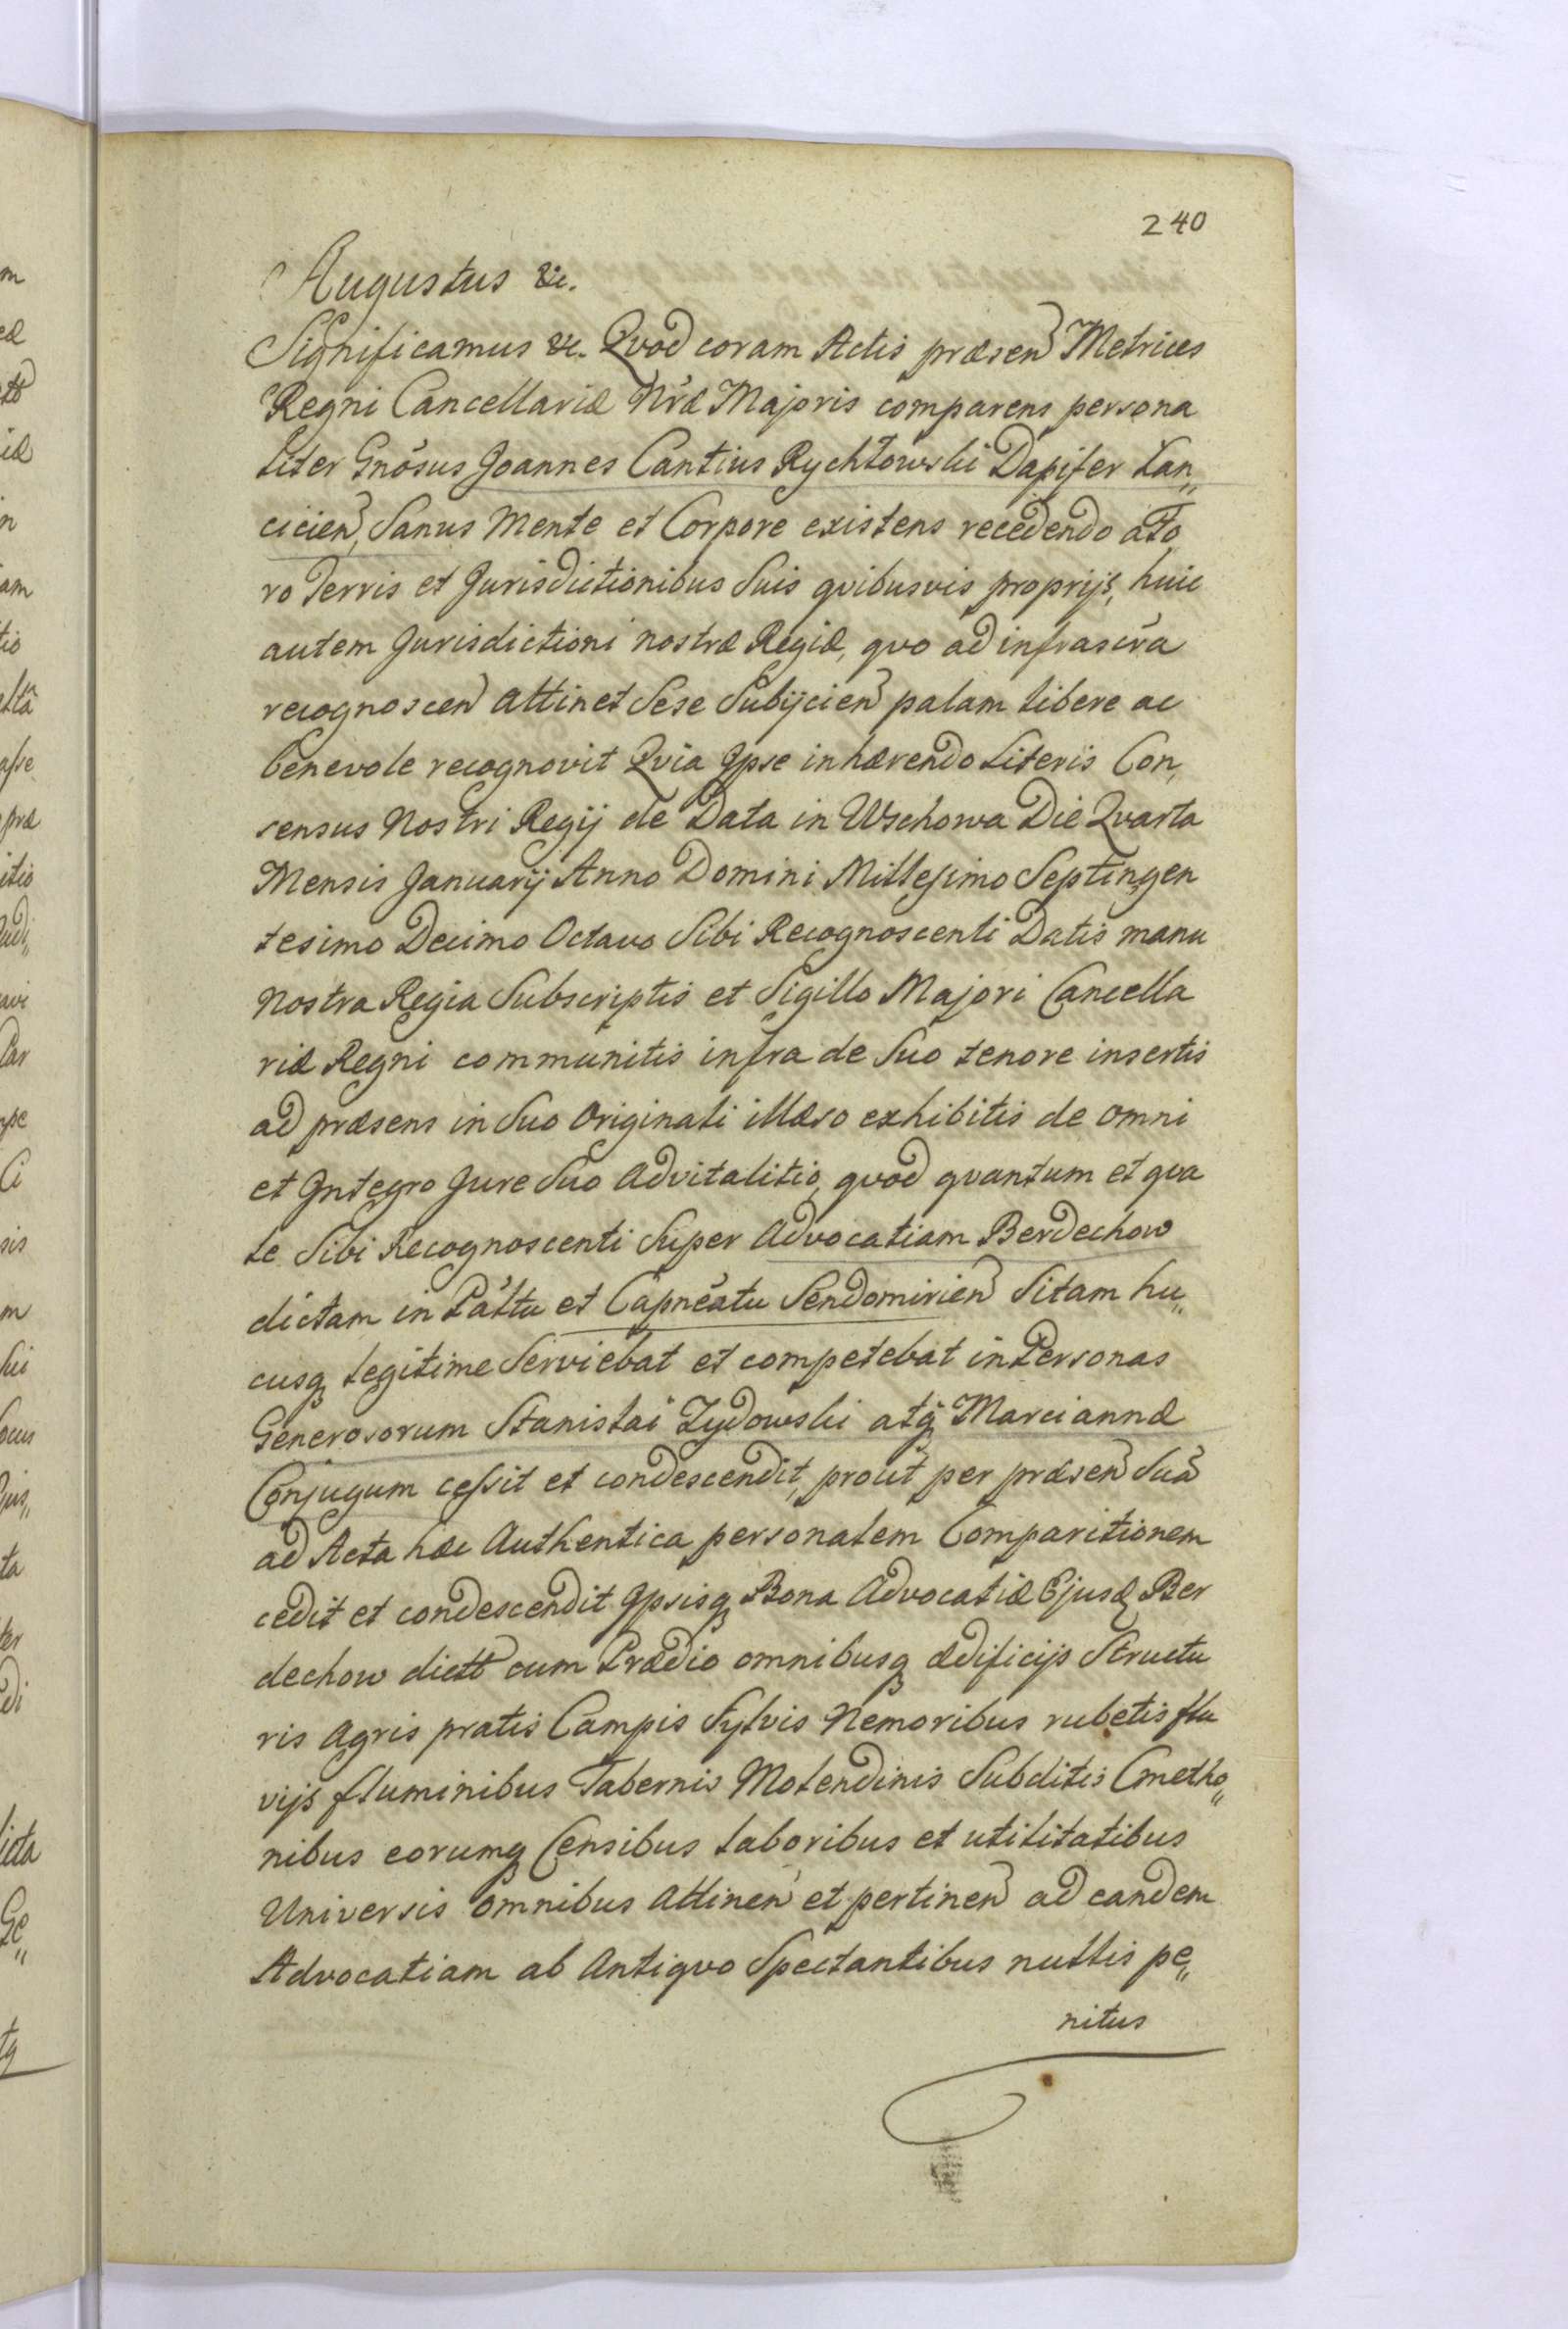 240
Augustus &c.
Significamus &c. Qvod coram Actis præsen Metrices
Regni Cancellariæ Nræ Majoris comparens persona
liter Gnosus Joannes Cantius Rychłowski Dapifer Lan„
cicien, Sanus Mente et Corpore existens recedendo a Fo,
ro Terris et Jurisdictionibus Suis qvibusvis proprijs, huic
autem Jurisdictioni nostræ Regiæ, qvo ad infrascra
recognoscen attinet Sese Subijcien palam libere ac
benevole recognovit Qvia Ipse inhærendo Literis Con,
sensus Nostri Regij de Data in Wschowa Die Qvarta
Mensis Januarij Anno Domini Millesimo Septingen
tesimo Decimo Octavo Sibi Recognoscenti Datis manu
Nostra Regia Subscriptis et Sigillo Majori Cancella
riæ Regni communitis infra de Suo tenore insertis
ad præsens in Suo Originali illæso exhibitis de omni
et Integro Jure Suo Advitalitio, qvod qvantum et qva
le Sibi Recognoscenti Super Advocatiam Berdechow
dictam in Pałtu et Capneatu Sendomirien Sitam hu„
cusq legitime Serviebat et competebat in Personas
Generosorum Stanislai Zydowski atq Mariannæ
Conjugum cessit et condescendit, prout per præsen Suā
ad Acta hæc Authentica personalem Comparitionem
cedit et condescendit Ipsisq Bona Advocatiæ Ejusd Ber
dechow dictt cum Prædio omnibusq ædificijs Structu
ris Agris pratis Campis Sylvis Nemoribus rubetis flu
vijs fluminibus Tabernis Molendinis Subditis Cmetho„
nibus eorumq Censibus laboribus et utilitatibus
Universis omnibus Attinen et pertinen ad eandem
Advocatiam ab Antiqvo Spectantibus nullis pe„
nitus